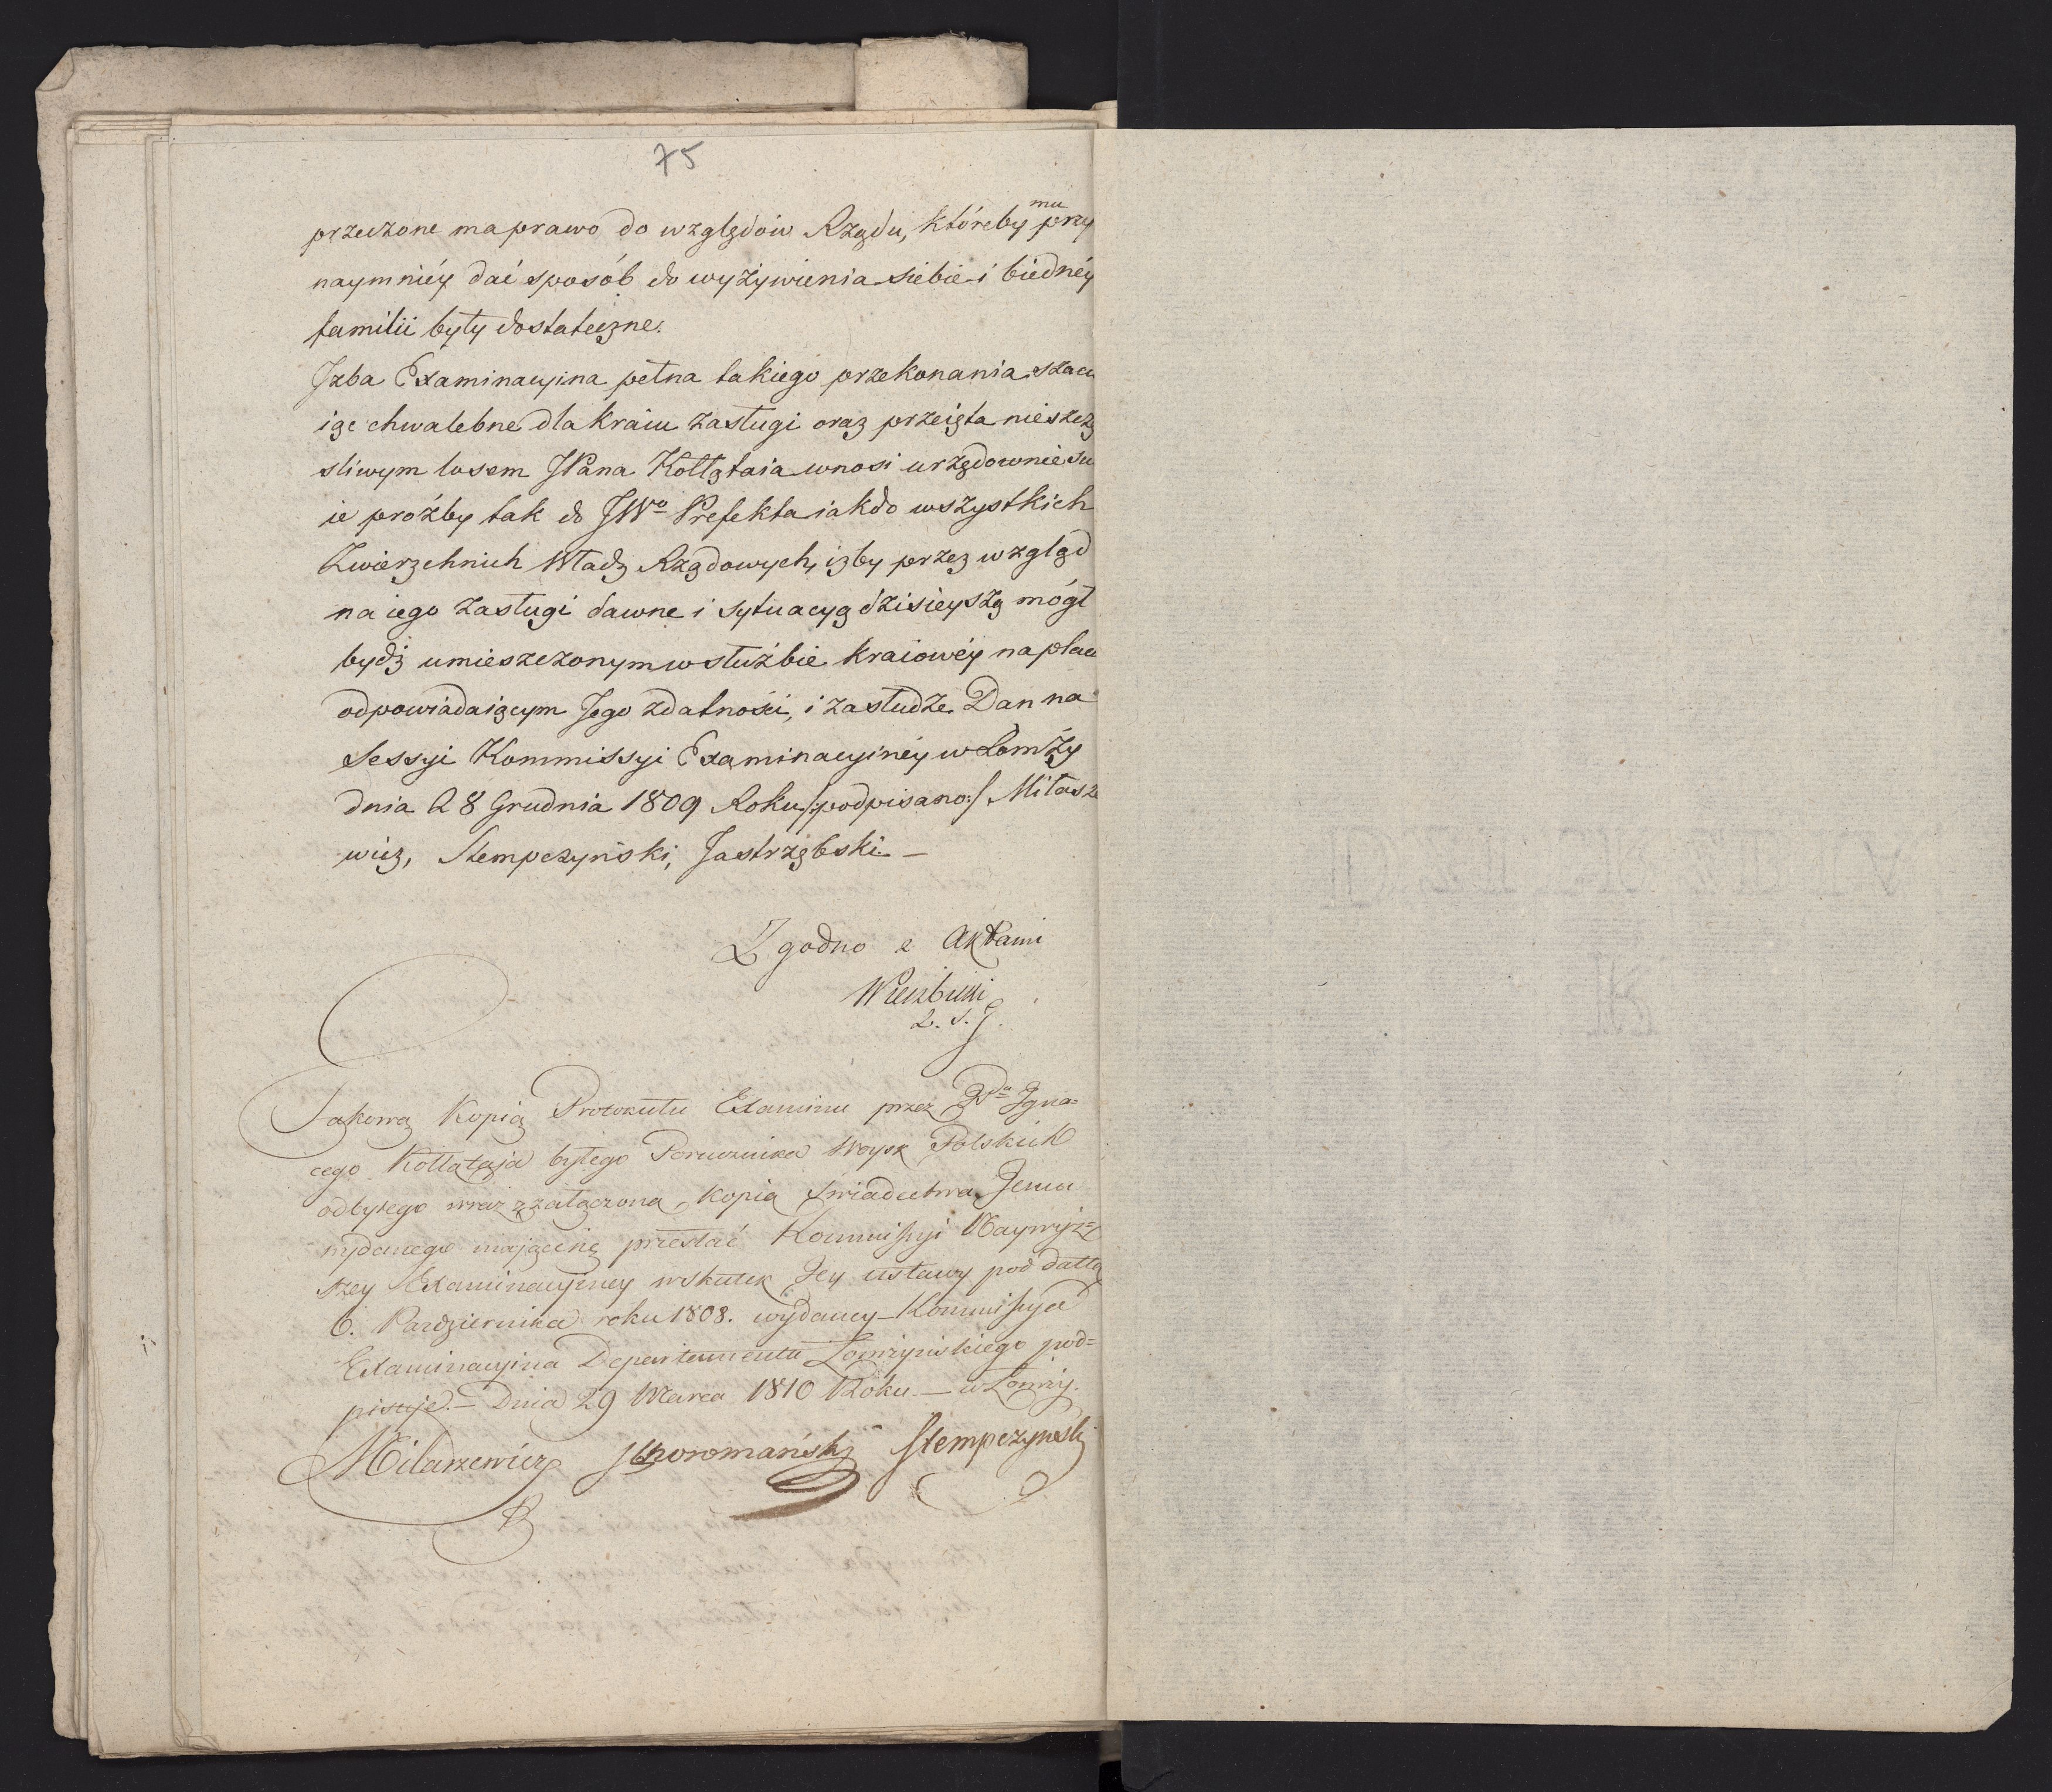 75
przeczone ma prawo do względów Rządu, któreby mu przy
naymniéy dać sposób do wyżywienia siebie i biednéy
familii były dostateczne.
Jzba Examinacyina pełna takiego przekonania szacu
iąc chwalebne dla kraiu zasługi oraz przeięta nieszczę
sliwym losem JPana Kołłątaia wnosi urzędownie su
ie proźby tak do JWo Prefekta iak do wszystkich
Zwierzchnich Władz Rządowych, iżby przez wzgląd
na iego zasługi dawne i sytuacyą dzisieyszą mógł
bydź umieszczonym w służbie kraiowéy na placu
odpowiadaiącym Jego zdatności, i zasłudze. Dan na
Sessyi Kommissyi Examinacyinéy w Łomży
dnia 28 Grudnia 1809 Roku /:podpisano:/ Miłasze
wicz, Stempczyński, Jastrzębski —
Zgodno z Aktami
Wierzbicki
Z. S. J.
Jakową Kopią Protokułu Examinu przez JPa Igna=
cego Kołłątaja byłego Porucznika Woysk Polskich
odbytego wraz z załączoną Kopią świadectwa Jemu
wydanego mającéię przesłać Kommissyi Naywyż=
szey Examinacyiney wskutek Jey ustawy pod dattą
6. Pazdziernika roku 1808. wydaney Kommissya
Examinacyina Departamentu Łomżyńskiego pod=
pisuje. — Dnia 29 Marca 1810 Roku — w Łomży.
Milaszewicz Skoromański Stempczyński